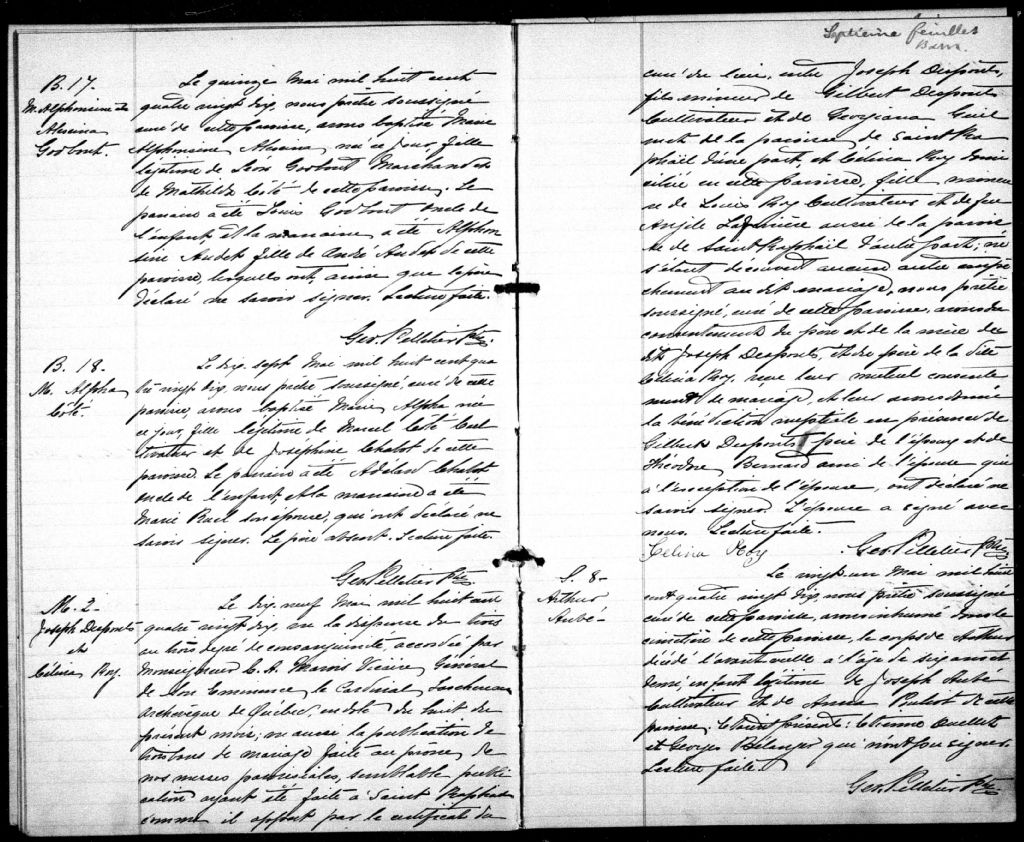 B. 17.
M. Alphonsine
Alvina
Godbout.
Le quinze Mai mil huit cent
quatre vingt dix, nous prêtre soussigné
curé de cette paroisse, avons baptisé Marie
Alphonsine Alvina, née ce jour, fille
légitime de Léon Godbout Marchand et
de Mathilde Coté de cette paroisse. Le
parrain a été Louis Godbout oncle de
l'enfant, et la marraine a été Alphon
sine Audet fille de André Audet de cette
paroisse, lesquels ont, ainsi que le père
déclaré ne savoir signer. Lecture faite.
Geo. Pelletier Ptre.
B. 18.
M. Alpha
Coté.
Le dix sept Mai mil huit cent qua
tre vingt dix, nous prêtre soussigné, curé de cette
paroisse, avons baptisé Marie Alpha née
ce jour, fille légitime de Marcel Coté Cul
tivateur et de Joséphine Chabot de cette
paroisse. Le parrain a été Adelard Chabot
oncle de l'enfant, et la marraine a été
Marie son épouse, qui ont déclaré ne
savoir signer. Le père absent. Lecture faite.
Geo. Pelletier Ptre
M. 2.
Joseph Desponts
et
Célina Roy.
Le dix neuf Mai mil huit cent
quatre vingt dix, vu la dispense du trois
au trois degré de consanguinité, accordée par
Monseigneur C. A. Marois Vicaire Général
de Son Eminence le Cardinal Taschereau
archevêque de Québec, en date du huit du
présent mois; vu aussi la publication de
trois bans de mariage faite au prône de
nos messes paroissiales, semblable publi
cation ayant été faite à Saint Raphael
comme il appert par le certificat du
Septième feuillet
curé du lieu, entre Joseph Desponts,
fils mineur de Gilbert Desponts
Cultivateur et de Georgiana Guil
met de la paroisse de Saint Ra
phaël d'une part, et Célina Roy domi
ciliée en cette paroisse, fille mineu
re de Louis Roy Cultivateur et de feu
Angèle aussi de la parois
se de Saint Raphaël d'autre part; ne
s'étant découvert aucun autre empê
chement au dit mariage, nous prêtre
soussigné, curé de cette paroisse, vu
consentement du père et de la mère du
dit Joseph Desponts, et du père de la dite
Célina Roy, reçu leur mutuel consente
ment de mariage, et leur avons donné
la bénédiction nuptiale en présence de
Gilbert Desponts père de l'époux et de
Théodore Bernard ami de l'épouse qui
à l'exception de l'épouse, ont déclaré ne
savoir signer. L'épouse a signé avec
nous. Lecture faite.
Célina Roy Geo. Pelletier Ptre
S. 8.
Arthur
Aubé
Le vingt un Mai mil huit
cent quatre vingt dix, nous prêtre soussigné
curé de cette paroisse, avons inhumé dans le
cimetière de cette paroisse, le corps de Arthur
décédé l'avant veille à l'âge de six ans et
demi, enfant légitime de Joseph Aubé
Cultivateur et de Anna de cette
paroisse. Etaient présents: Etienne Ouellet
et Georges Bélanger qui n'ont pu signer.
Lecture faite.
Geo. Pelletier Ptre